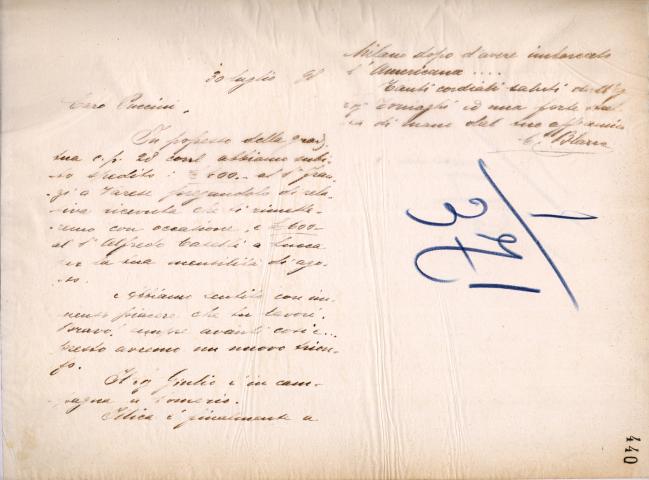 30 luglio 98
Caro Puccini,
In possesso della grad.
tua c.p. 28 corr. abbiamo subi-
to spedito: £ 500.- al Sr
a Varese pregandolo di rela-
tiva ricevuta che ti rimette-
remo con occasione, e £ 600.-
al Sr Alfredo Caselli a Lucca
per la tua mensilità di ago-
sto.
Abbiamo sentito con im-
menso piacere che tu lavori.
Bravo! sempre avanti così e...
presto avremo un nuovo trion-
fo.
Il Sig Giulio è in cam-
pagna a
Illica è finalmente a
Milano dopo d'avere imbarcato
l'Americana ....
Tanti cordiali saluti da
ed una forte
di mano dal tuo aff amico
C. Blanc
1/371
440